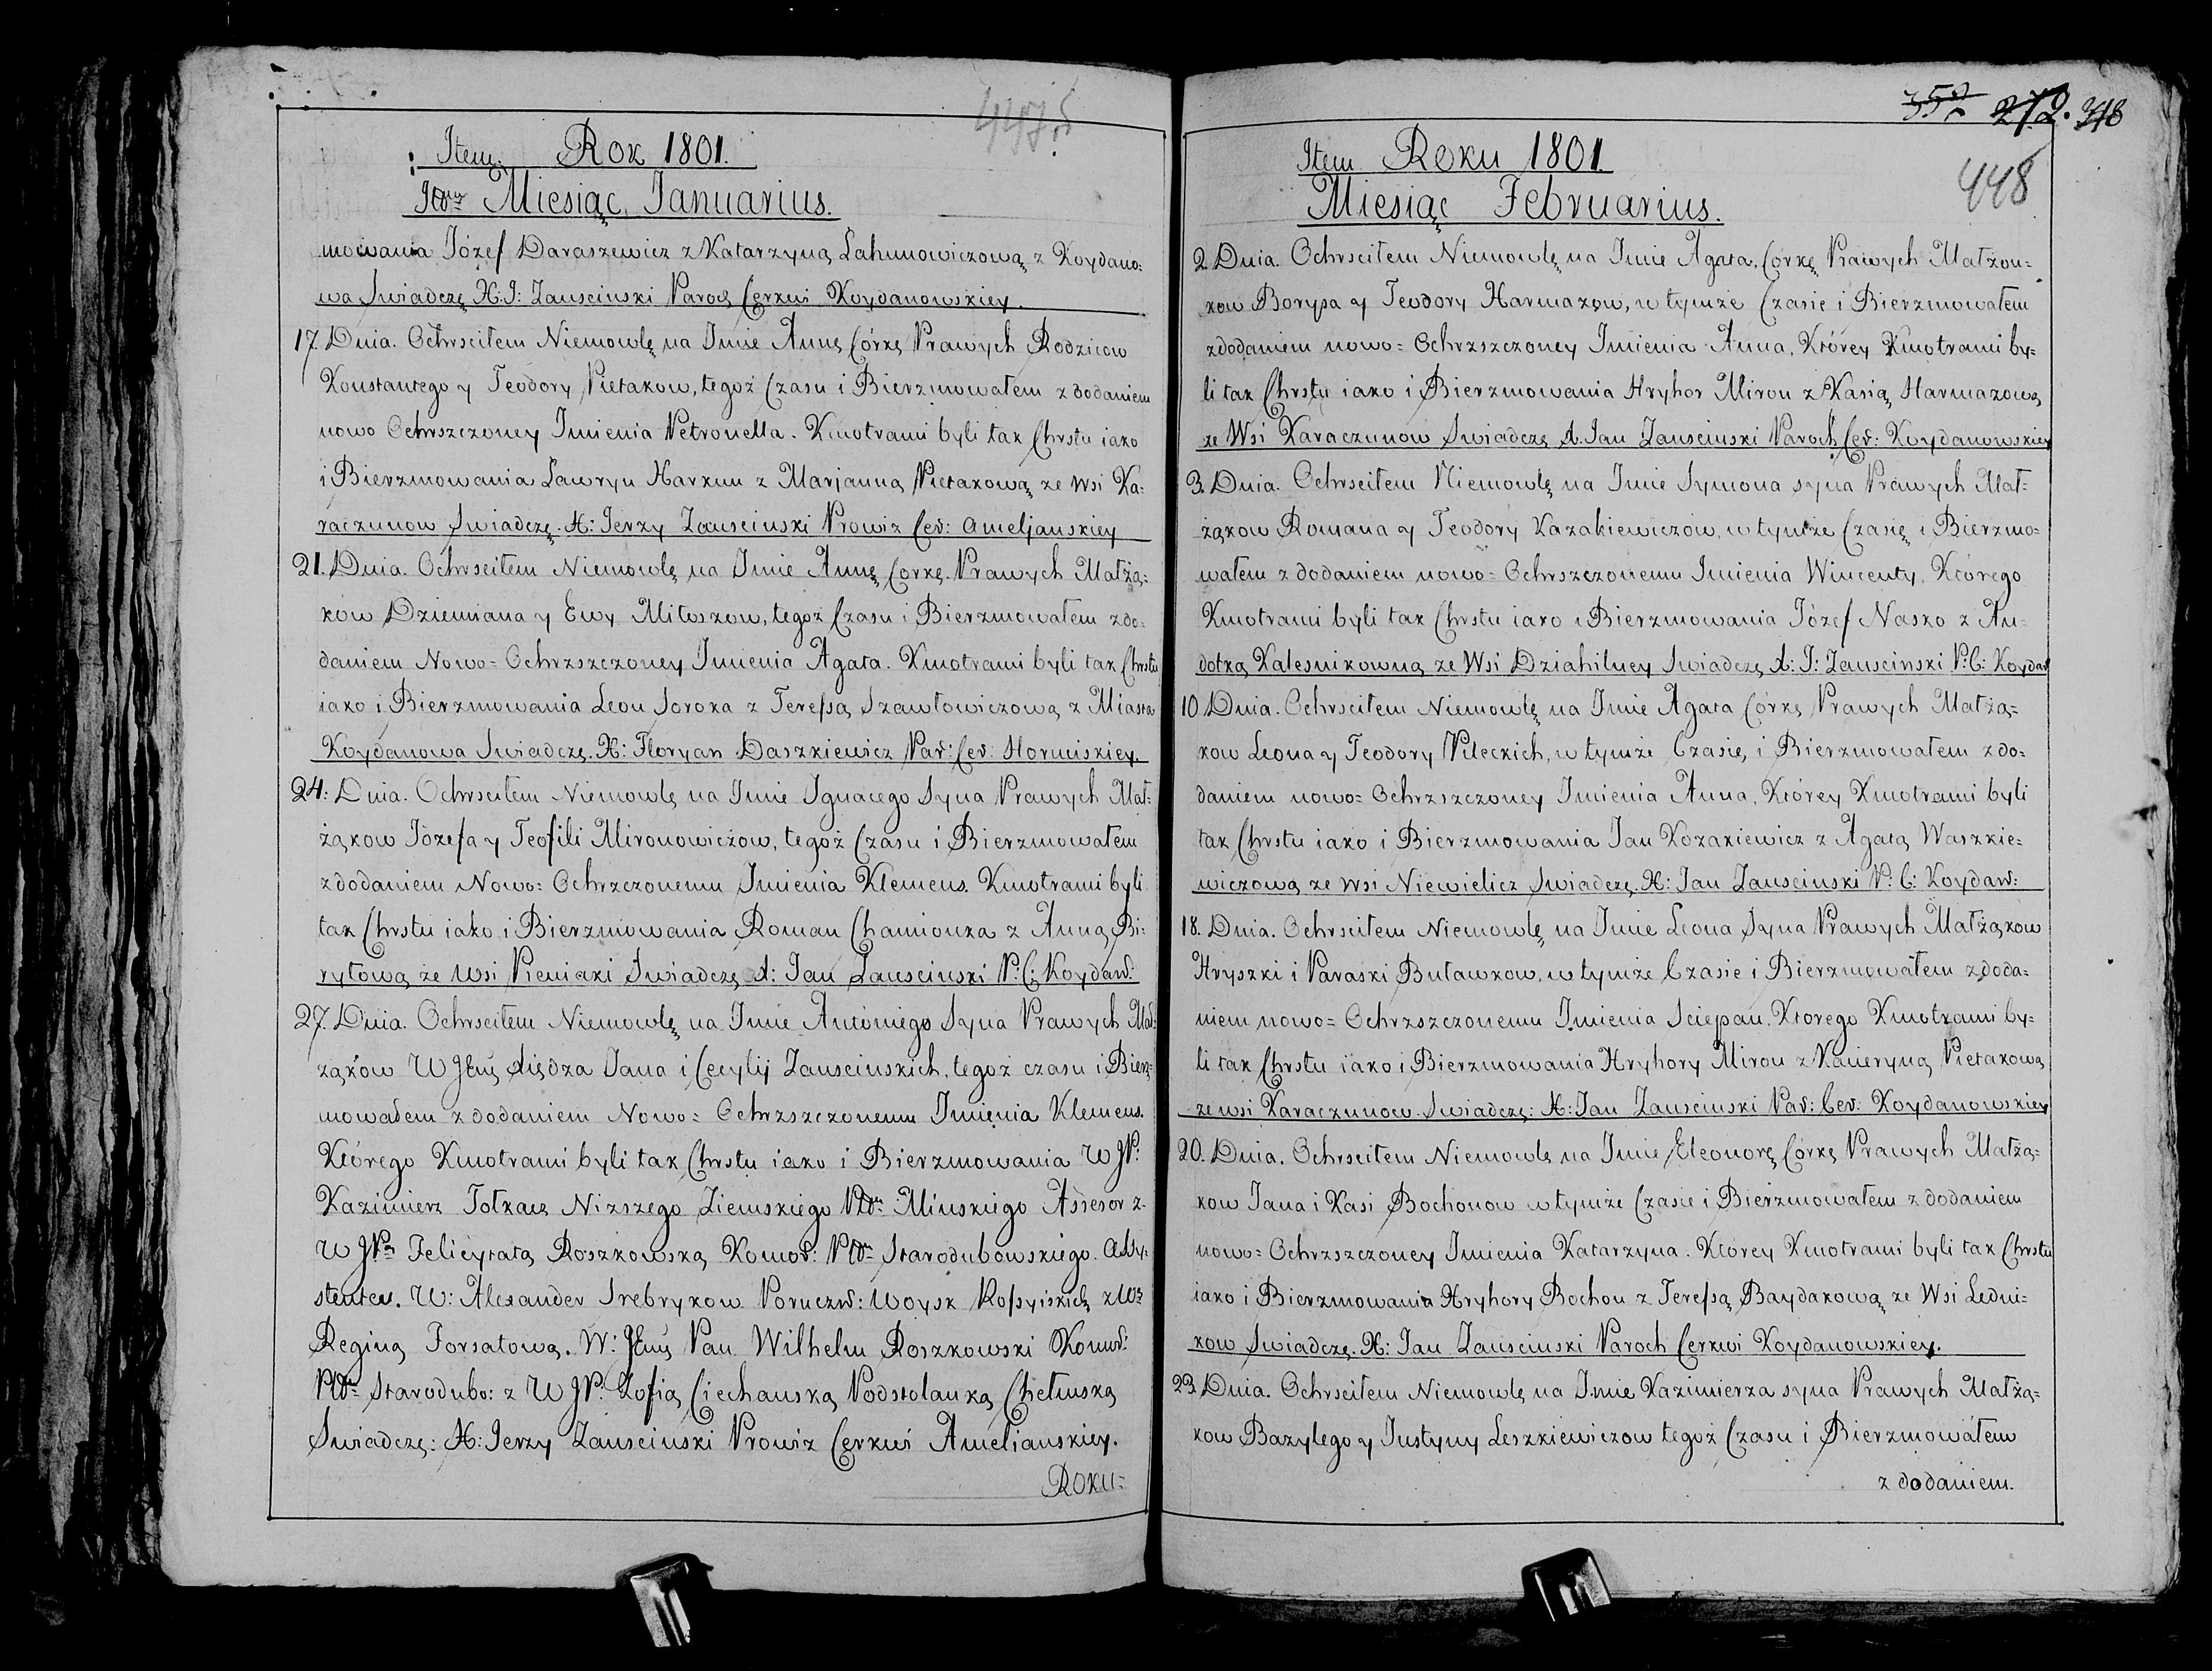 Item. Rok 1801.
Miesiąc Januarius.
mowania Józef Daraszewicz z Katarzyną Lahunowiczową z Koydano=
wa Swiadczę X: J: Zauscinski Paroch Cerkwi Koydanowskiey.
17. Dnia. Ochrsciłem Niemowlę na Jmie Annę Córkę Prawych Rodzicow
Konstantego y Teodory Pietakow, tegoż Czasu i Bierzmowałem z dodaniem
nowo Ochrszczoney Jmienia Petronella. Kmotrami byli tak Chrstu iako
i Bierzmowania Ławryn Harkun z Marjanną Pietakową ze wsi Ka=
raczunow Swiadczę. X: Jerzy Zauscinski Prowiz Cer: Ameljanskiey
21. Dnia. Ochrsciłem Niemowlę na Jmie Annę Corkę Prawych Małżą=
kow Dziemiana y Ewy Miłoszow, tegoż Czasu i Bierzmowałem z do=
daniem Nowo=Ochrzszczoney Jmienia Agata. Kmotrami byli tak Chrstu
iako i Bierzmowania Leon Soroka z Teressą Szawłowiczową z Miasta
Koydanowa Swiadczę. X: Floryan Daszkiewicz Par: Cer:
24: Dnia. Ochrsciłem Niemowlę na Jmie Jgnacego Syna Prawych Mał=
żąkow Józefa y Teofili Mironowiczow, tegoż Czasu i Bierzmowałem
z dodaniem Nowo=Ochrzczonemu Jmienia Klemens. Kmotrami byli
tak Chrstu iako i Bierzmowania Roman Chamionka z Anną Bi=
rytową ze wsi Pieniaki Swiadczę X: Jan Zauscinski P: C: Koydan:
27. Dnia. Ochrsciłem Niemowlę na Jmie Antoniego Syna Prawych Mał=
żąków W Xiędza Jana i Cecylij Zauscinskich, tegoż czasu i Bierz=
mowałem z dodaniem Nowo=Ochrzszczonemu Jmienia Klemens.
Którego Kmotrami byli tak Chrstu iako i Bierzmowania W JP:
Kazimierz Tołkacz Nizszego Ziemskiego Minskiego Assesor z
W JP Felicytatą Roszkowską Komor: Starodubowskiego. Assy=
stentes. W: Alexander Srebrykow Porucz: Woysk Rossyiskich z
Reginą Forsatową. W: Pan Wilhelm Roszkowski Komor:
Starodubo: z W JP: Zofią Ciechanską Podstolanką Chełmską
Swiadczę: X: Jerzy Zauscinski Prowiz Cerkwi Amelianskiey.
Roku=
447
352 272. 318
448
Item Roku 1801.
Miesiąc Februarius.
2. Dnia. Ochrsciłem Niemowlę na Jmie Agata, Corkę Prawych Małżon=
kow Borysa y Teodory Harmazow, w tymże Czasie i Bierzmowałem
z dodaniem nowo=Ochrzszczoney Jmienia Anna, Którey Kmotrami by=
li tak Chrstu iako i Bierzmowania Hryhor Miron z Kasią Harmazową
ze Wsi Karaczunow Swiadczę X. Jan Zauscinski Paroch Cer: Koydanowskiey
3. Dnia. Ochrsciłem Niemowlę na Jmie Symona syna Prawych Mał=
żąkow Romana y Teodory Kazakiewiczów, w tymże Czasię i Bierzmo=
wałem z dodaniem nowo=Ochrszczonemu Jmienia Wincenty, Którego
Kmotrami byli tak Chrstu iako i Bierzmowania Józef Nasko z An=
dotką Kalesnikowną ze Wsi Dziahilney Swiadczę X: J: Zauscinski P: C: Koydan
10 Dnia. Ochrsciłem Niemowlę na Jmie Agata Córkę Prawych Małżą=
kow Leona y Teodory Pileckich, w tymże Czasię i Bierzmowałem z do=
daniem nowo=Ochrzszczoney Jmienia Anna, Którey Kmotrami byli
tak Chrstu iako i Bierzmowania Jan Kozakiewicz z Agatą Waszkie=
wiczową ze wsi Niewielicz Swiadczę. X: Jan Zauscinski P: C: Koydan:
18. Dnia. Ochrsciłem Niemowlę na Jmie Leona Syna Prawych Małżąkow
Hryszki i Paraski Buławkow, w tymże Czasie i Bierzmowałem z doda=
niem nowo=Ochrzszczonemu Jmienia Sciepan. Ktorego Kmotrami by=
li tak Chrstu iako i Bierzmowania Hryhory Miron z Kateryną Pietakową
ze wsi Karaczunow. Swiadczę: X: Jan Zauscinski Par: Cer: Koydanowskiey
20. Dnia. Ochrsciłem Niemowlę na Jmie Eleonorę Córkę Prawych Małżą=
kow Jana i Kasi Bochonow w tymże Czasie i Bierzmowałem z dodaniem
nowo=Ochrzszczoney Jmienia Katarzyna. Którey Kmotrami byli tak Chrstu
iako i Bierzmowania Hryhory Bochon z Teressą Baydakową ze Wsi Ledni=
kow Swiadczę. X: Jan Zauscinski Paroch Cerkwi Koydanowskiey.
23. Dnia. Ochrsciłem Niemowlę na Jmie Kazimierza syna Prawych Małżą=
kow Bazylego y Justyny Leszkiewiczow tegoż Czasu i Bierzmowałem
z dodaniem.